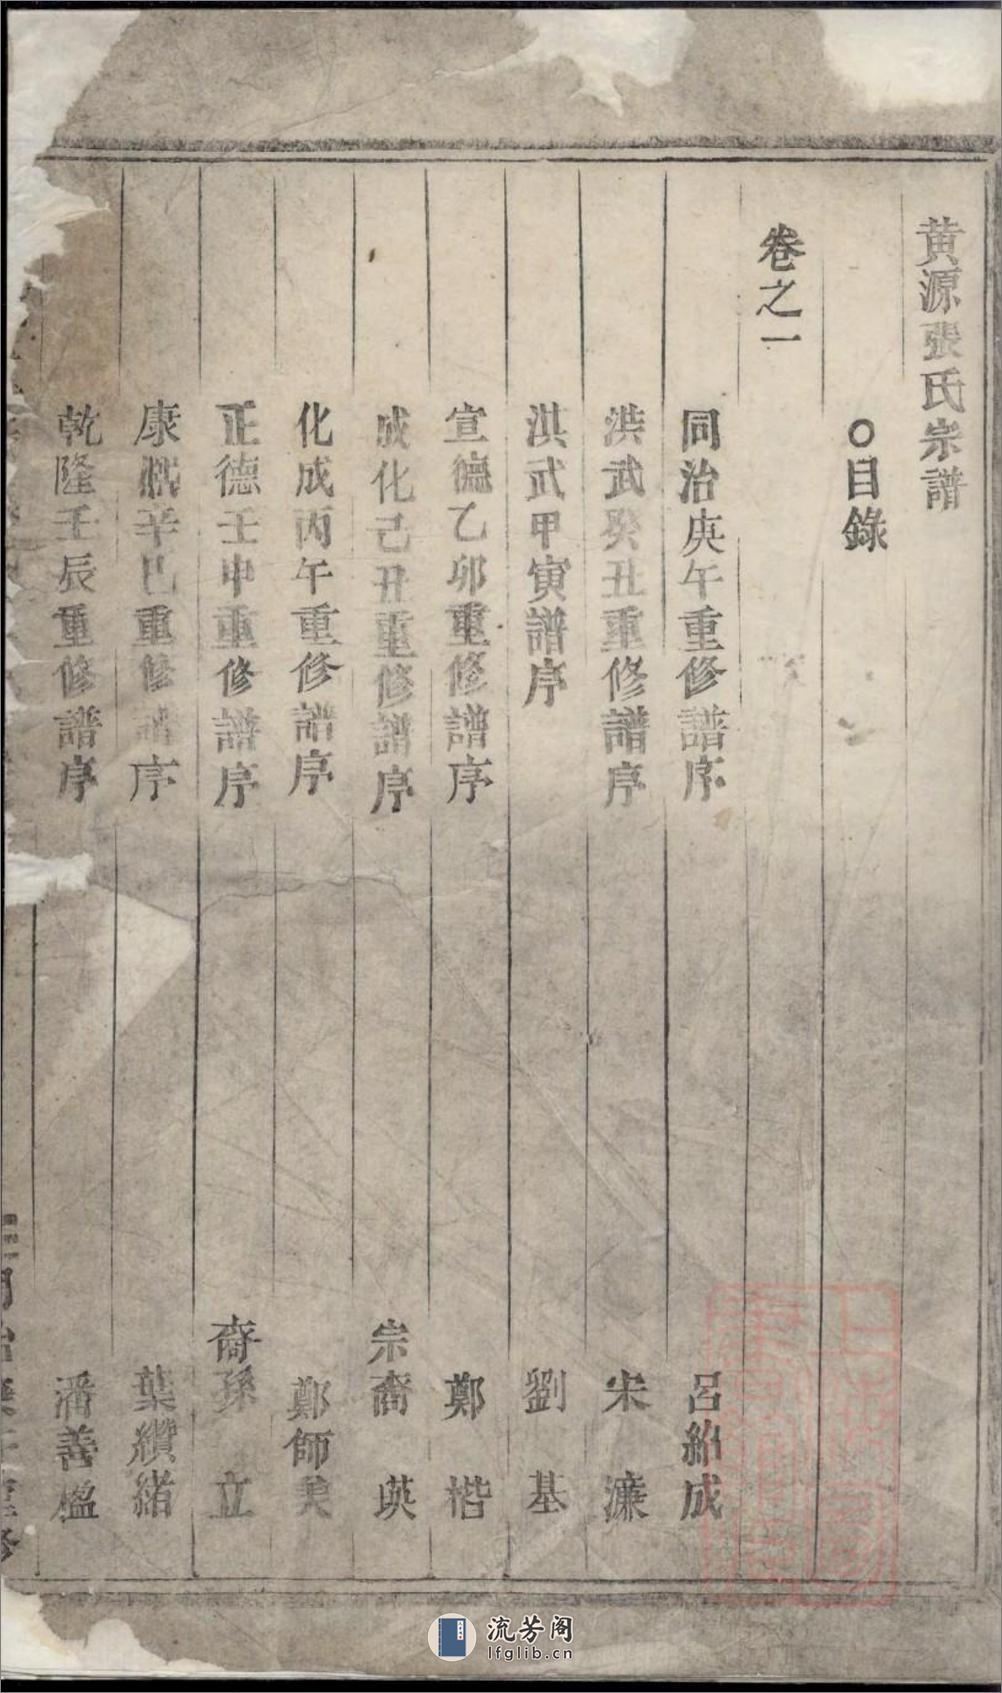 黄源張氏宗譜
○目錄
卷之一
同治庚午重修譜序 呂紹成
洪武癸丑重修譜序 宋濂
洪武甲寅譜序 劉基
宣德乙卯重修譜序 鄭楷
成化己丑重修譜序 宗裔 英
化成丙午重修譜序 鄭師美
正德壬申重修譜序 裔孫 立
康熙辛巳重修譜序 葉纘緒
乾隆壬辰重修譜序 潘善楹
流芳阁
lfglib.cn